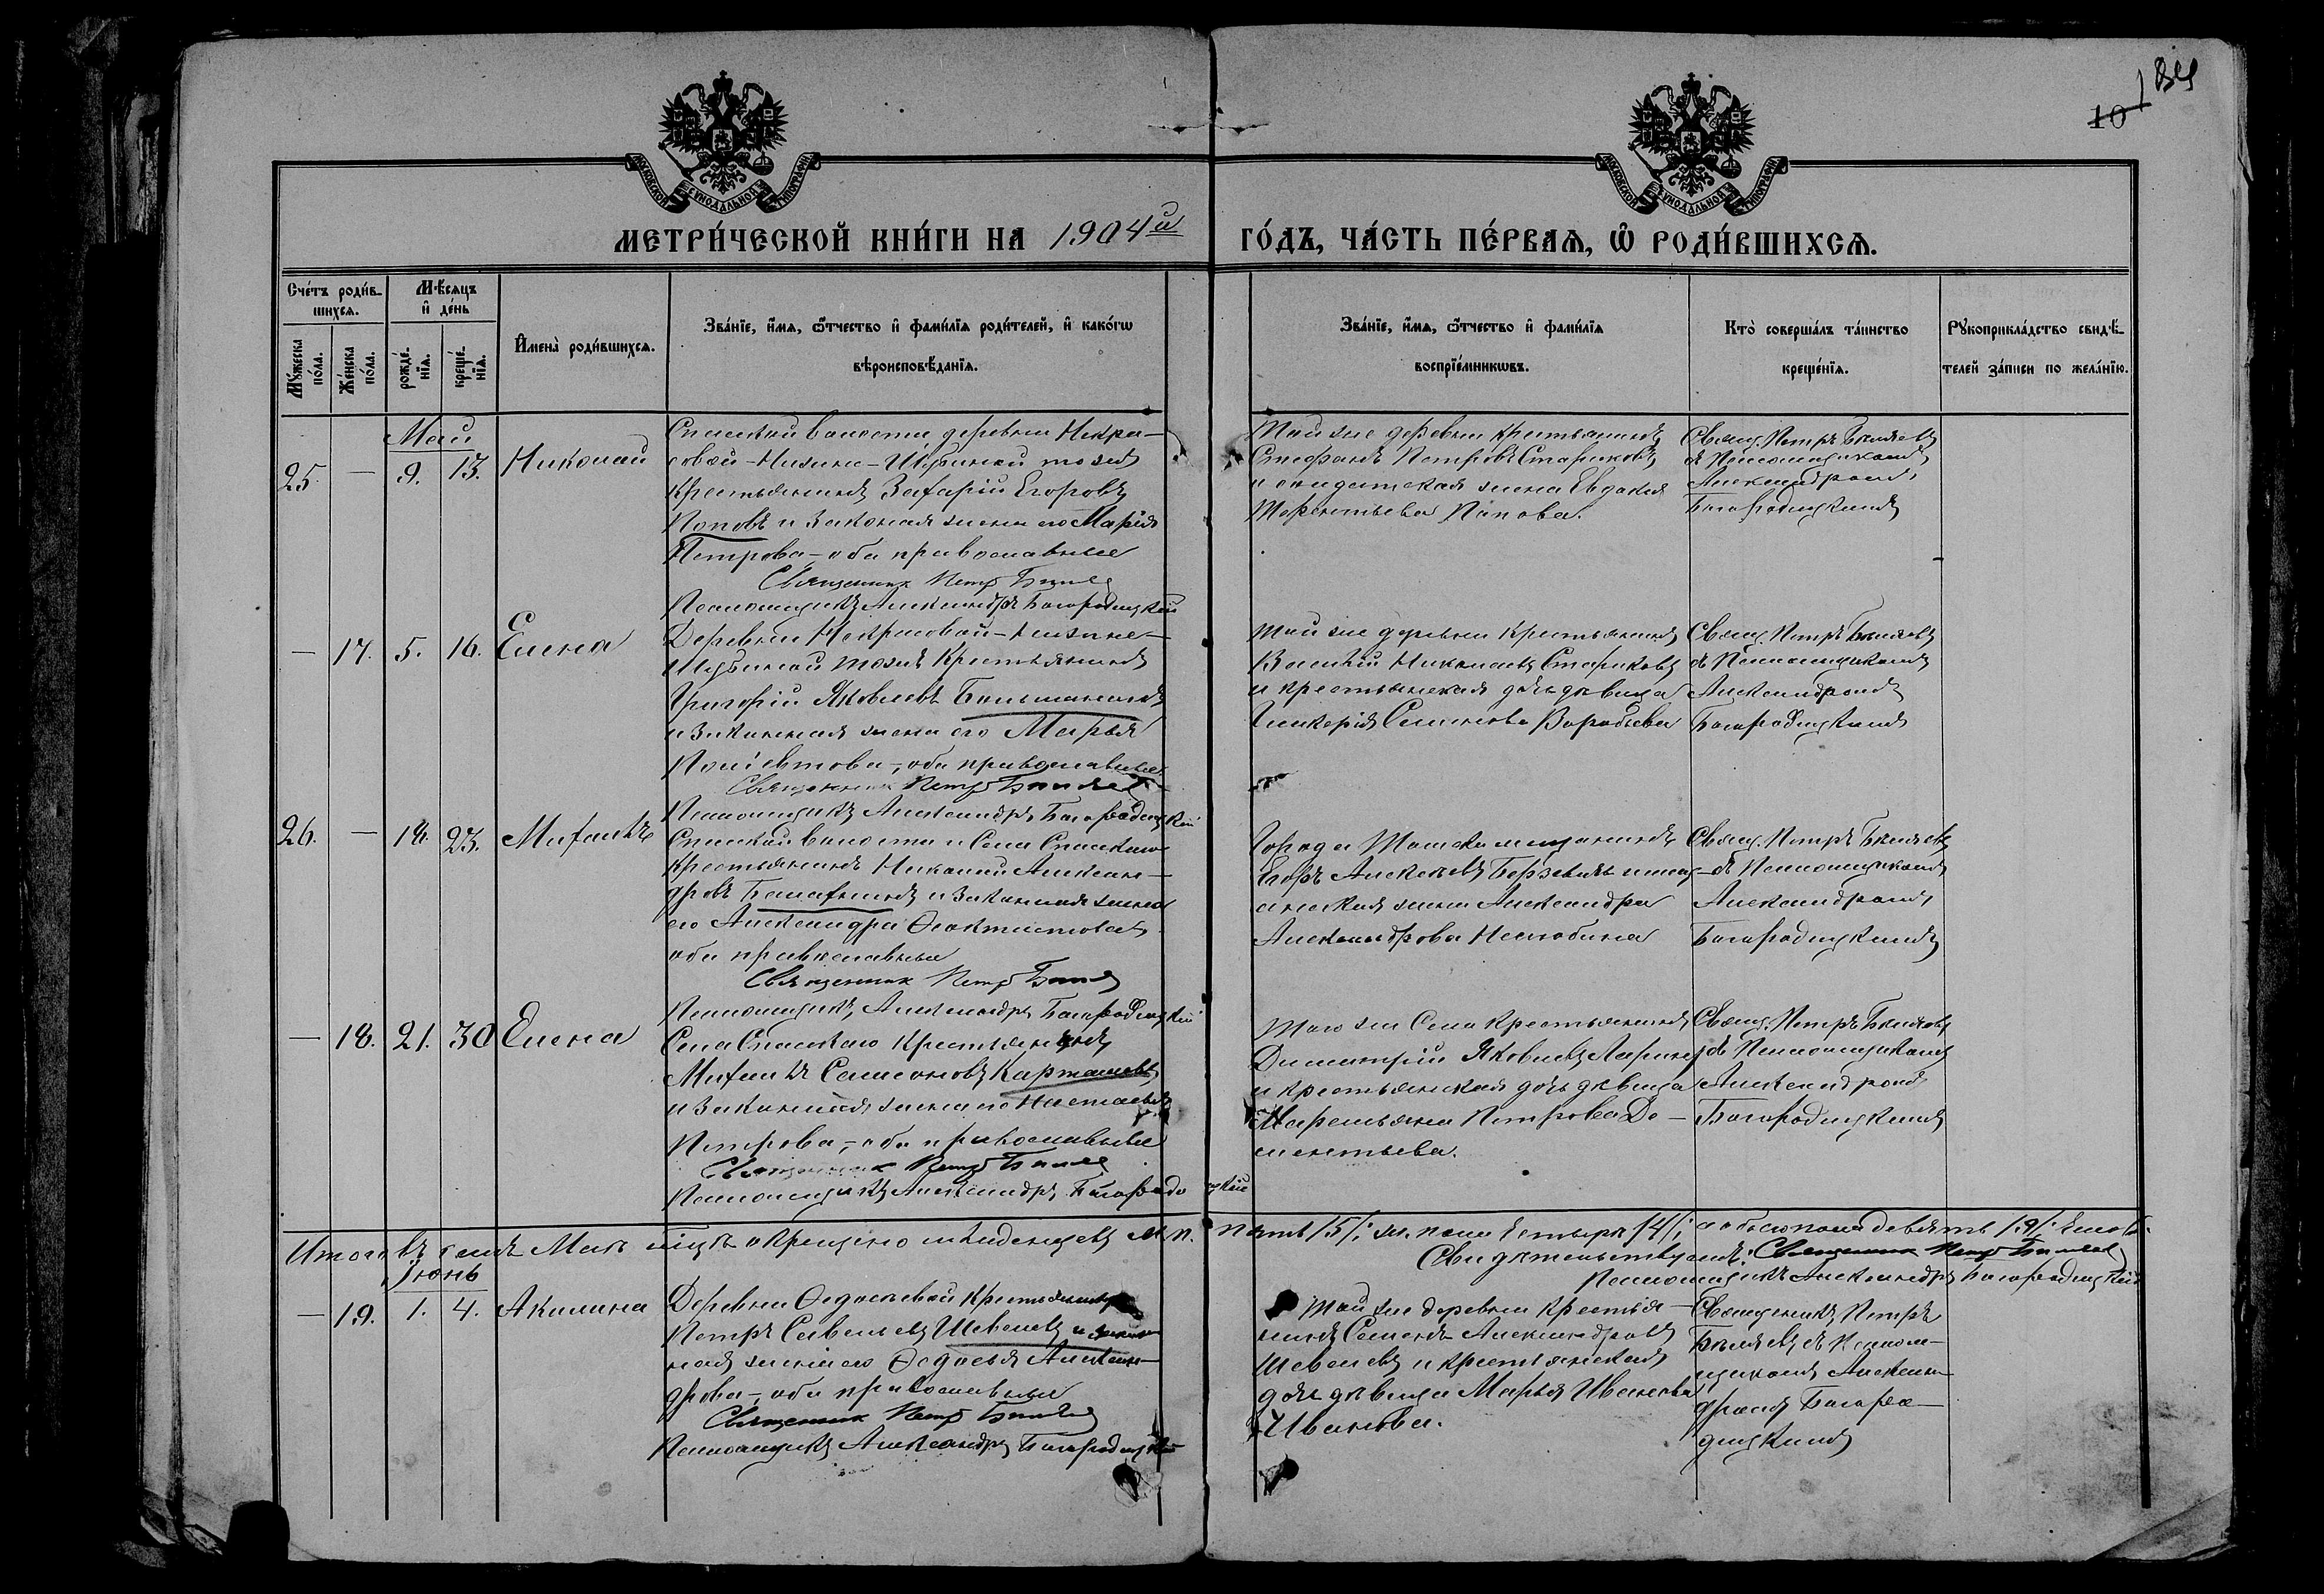 134
10
МОСКОВСКОЙ СѴНОДАЛЬНОЙ ТИПОГРАФІИ
МОСКОВСКОЙ СѴНОДАЛЬНОЙ ТИПОГРАФІИ
МЕТРИ́ЧЕСКОЙ КНИ́ГИ НА 1904й
ГО́ДЪ, ЧА́СТЬ ПЕ́РВАѦ, Ѿ РОДИ́ВШИХСѦ.
Сче́тъ роди́в-
шихсѧ.
Мꙋжеска по́ла.
Же́нска по́ла.
Мѣ́сѧцъ
и҆ де́нь
рожде́-
нїѧ.
креще́-
нїѧ.
И҆мена̀ роди́вшихсѧ.
Зва́нїе, и҆́мѧ, ѻ҆́тчество и҆ фами́лїѧ роди́телей, и҆ како́гѡ
вѣроисповѣ́данїѧ.
Зва́нїе, и҆́мѧ, ѻ҆́тчество и҆ фами́лїѧ
воспрїе́мникѡвъ.
Кто̀ соверша́лъ та́инство
креще́нїѧ.
Рꙋкоприкла́дство свидѣ́-
телей за́писи по жела́нїю.
Май
25. — 9. 13. Николай
Спасской волости, деревни Некра-
совой-Низина-Шубиной тожъ
крестьянинъ Захарій Егоровъ
Поповъ и законная жена его Марія
Петрова – оба православные
Священник Петр Беляев
Псаломщикъ Александръ Богородицкій
Той же деревни крестьянинъ
Стефанъ Петровъ Стариковъ
и солдатская жена Евдокія
Терентьева Попова.
Свящ. Петръ Бѣляевъ
съ Псаломщикомъ
Александромъ
Богородицкимъ
— 17. 5. 16. Елена
Деревни Некрасовой-Низине-
Шубиной тожъ крестьянинъ
Григорій Яковлевъ Большанинъ
и законная жена его Марья
Поліевктова –, оба православные
Священник Петр Беляев
Псаломщикъ Александръ Богородицкій
Той же деревни крестьянинъ
Василій Николаевъ Стариковъ
и крестьянская дочь дѣвица
Гликерія Семенова Воробьева
Свящ. Петръ Бѣляевъ
съ Псаломщикомъ
Александромъ
Богородицкимъ
26. — 18. 23. Михаилъ
Спасской волости и Села Спасскаго
крестьянинъ Николай Алексан-
дровъ и законная жена
его Александра Ѳеоктистова
оба православные
Священник Петр Беляев
Псаломщикъ Александръ Богородицкій
Города Томска мещанинъ
Егоръ Алексѣевъ
жена Александра
Александрова
Свящ. Петръ Бѣляевъ
съ Псаломщикомъ
Александромъ
Богородицкимъ
— 18. 21. 30 Елена
Села Спасскаго крестьянинъ
Михаилъ Самсоновъ Карташевъ
и законная жена его Настасья
Петрова –, оба православные
Священник Петр Беляев
Псаломщикъ Александръ Богородицкій
Того же Села крестьянинъ
Димитрій Яковлевъ Ларинъ
и крестьянская дочь дѣвица
Маремьяна Петрова До-
ментьева.
Свящ. Петръ Бѣляевъ
съ Псаломщикомъ
Александромъ
Богородицкимъ
Итого въ семъ Маѣ мѣсяцѣ окрещено младенцевъ м. п. пять /5/; ж. пола четыре /4/; а обоего пола девять /9/; человѣкъ.
Свидѣтельствуемъ: Священник Петр Беляев
Псаломщикъ Александръ Богородицкій
Іюнь
— 19. 1. 4. Акилина
Деревни Ѳедосѣевой крестьянинъ
Петръ Савельевъ Шевелевъ и закон-
ная жена его Ѳедосья Алексан-
дрова –, оба православные
Священник Петр Беляев
Псаломщикъ Александръ Богородицкій
Той же деревни крестья-
нинъ Семенъ Александровъ
Шевелевъ и крестьянская
дочь дѣвица Марья Иванова
Иванова.
Священникъ Петръ
Бѣляевъ, съ Псалом-
щикомъ Алексан-
дромъ Богоро-
дицкимъ